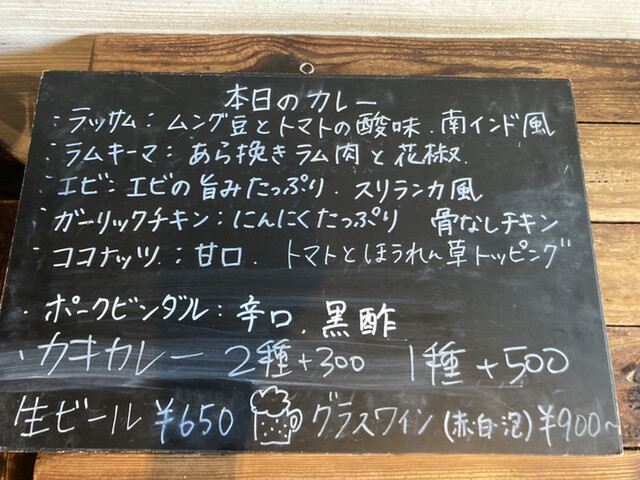 本日のカレー
・ラッサム：ムング豆とトマトの酸味．南インド風
・ラムキーマ：あら挽きラム肉と花椒．
・エビ：エビの旨みたっぷり．スリランカ風
・ガーリックチキン：にんにくたっぷり 骨なしチキン
・ココナッツ．：甘口．トマトとほうれん草トッピング
・ポークビンダル：辛口．黒酢
・カキカレー 2種+300 1種+500
生ビール ¥650 グラスワイン（赤・白・泡）¥900～